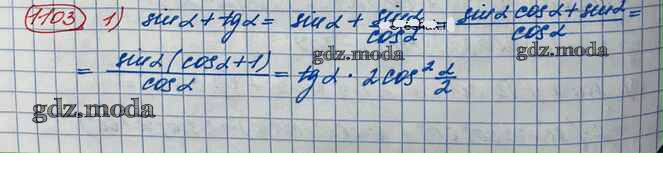 1103 1) sinα + tgα = sinα + sinα/cosα = (sinα cosα + sinα)/cosα =
gdz.moda
= sinα (cosα + 1)/cosα = tgα · 2cos² α/2
gdz.moda
gdz.moda